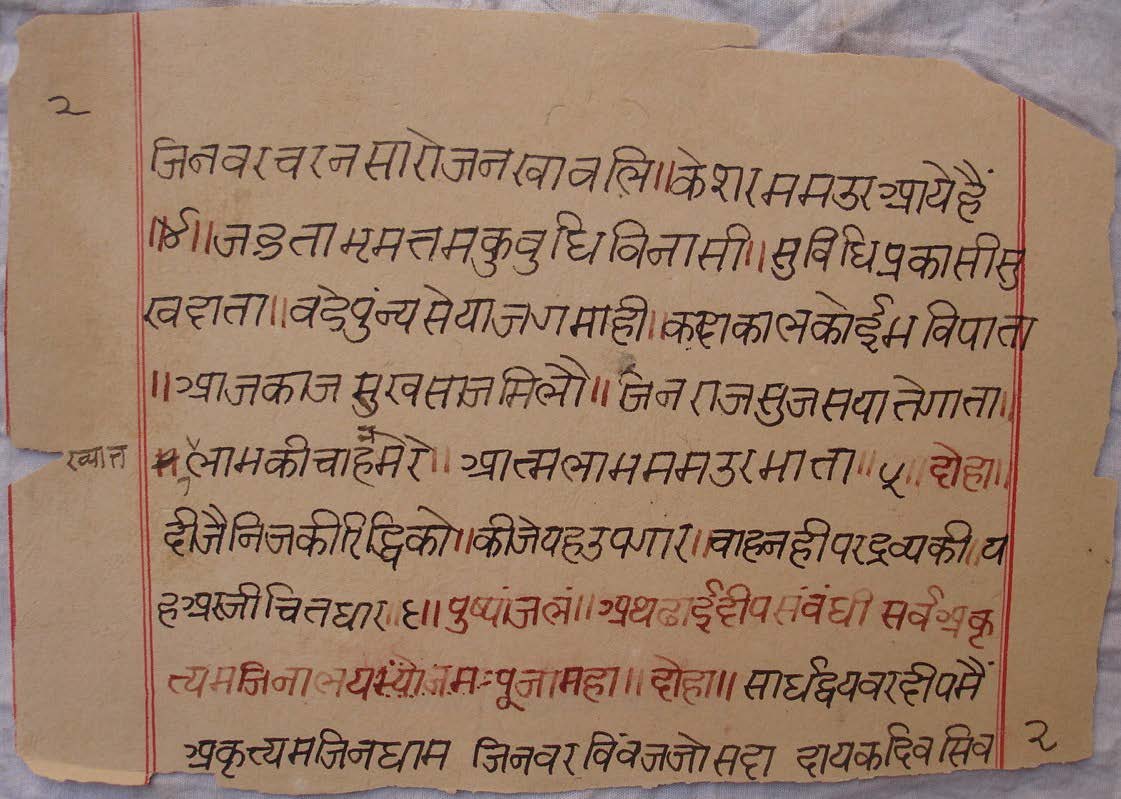 २
जिनवरचरनसारोजनखावलि॥केशरममउरआयेहैं
॥४॥जडतामरमतमकुवुधिविनासी॥सुविधिप्रकासीसु
खदाता॥वदेपुंन्यसेयाजगमाही॥
॥आजकाजसुखसाजमिलौ॥जिनराजसुजसयातेगाता॥
ख्यात लाभकीचाहनमेरे॥आत्मलाभममउरभाता॥५॥दोहा॥
दीजैनिजकीरिद्धिको॥कीजेयहउपगार॥चाहनहीपरद्रव्यकी॥य
हअरजीचितधार॥६॥पुष्पांजलं॥अथढाईदीपसंवंधी सर्वअकृ
त्यमजिनालयभ्योनमःपूजामहा॥दोहा॥सार्धद्वयवरदीपमैं
अकृत्यमजिनधाम जिनवरविंवजजोसदा दायकदिवसिव
२